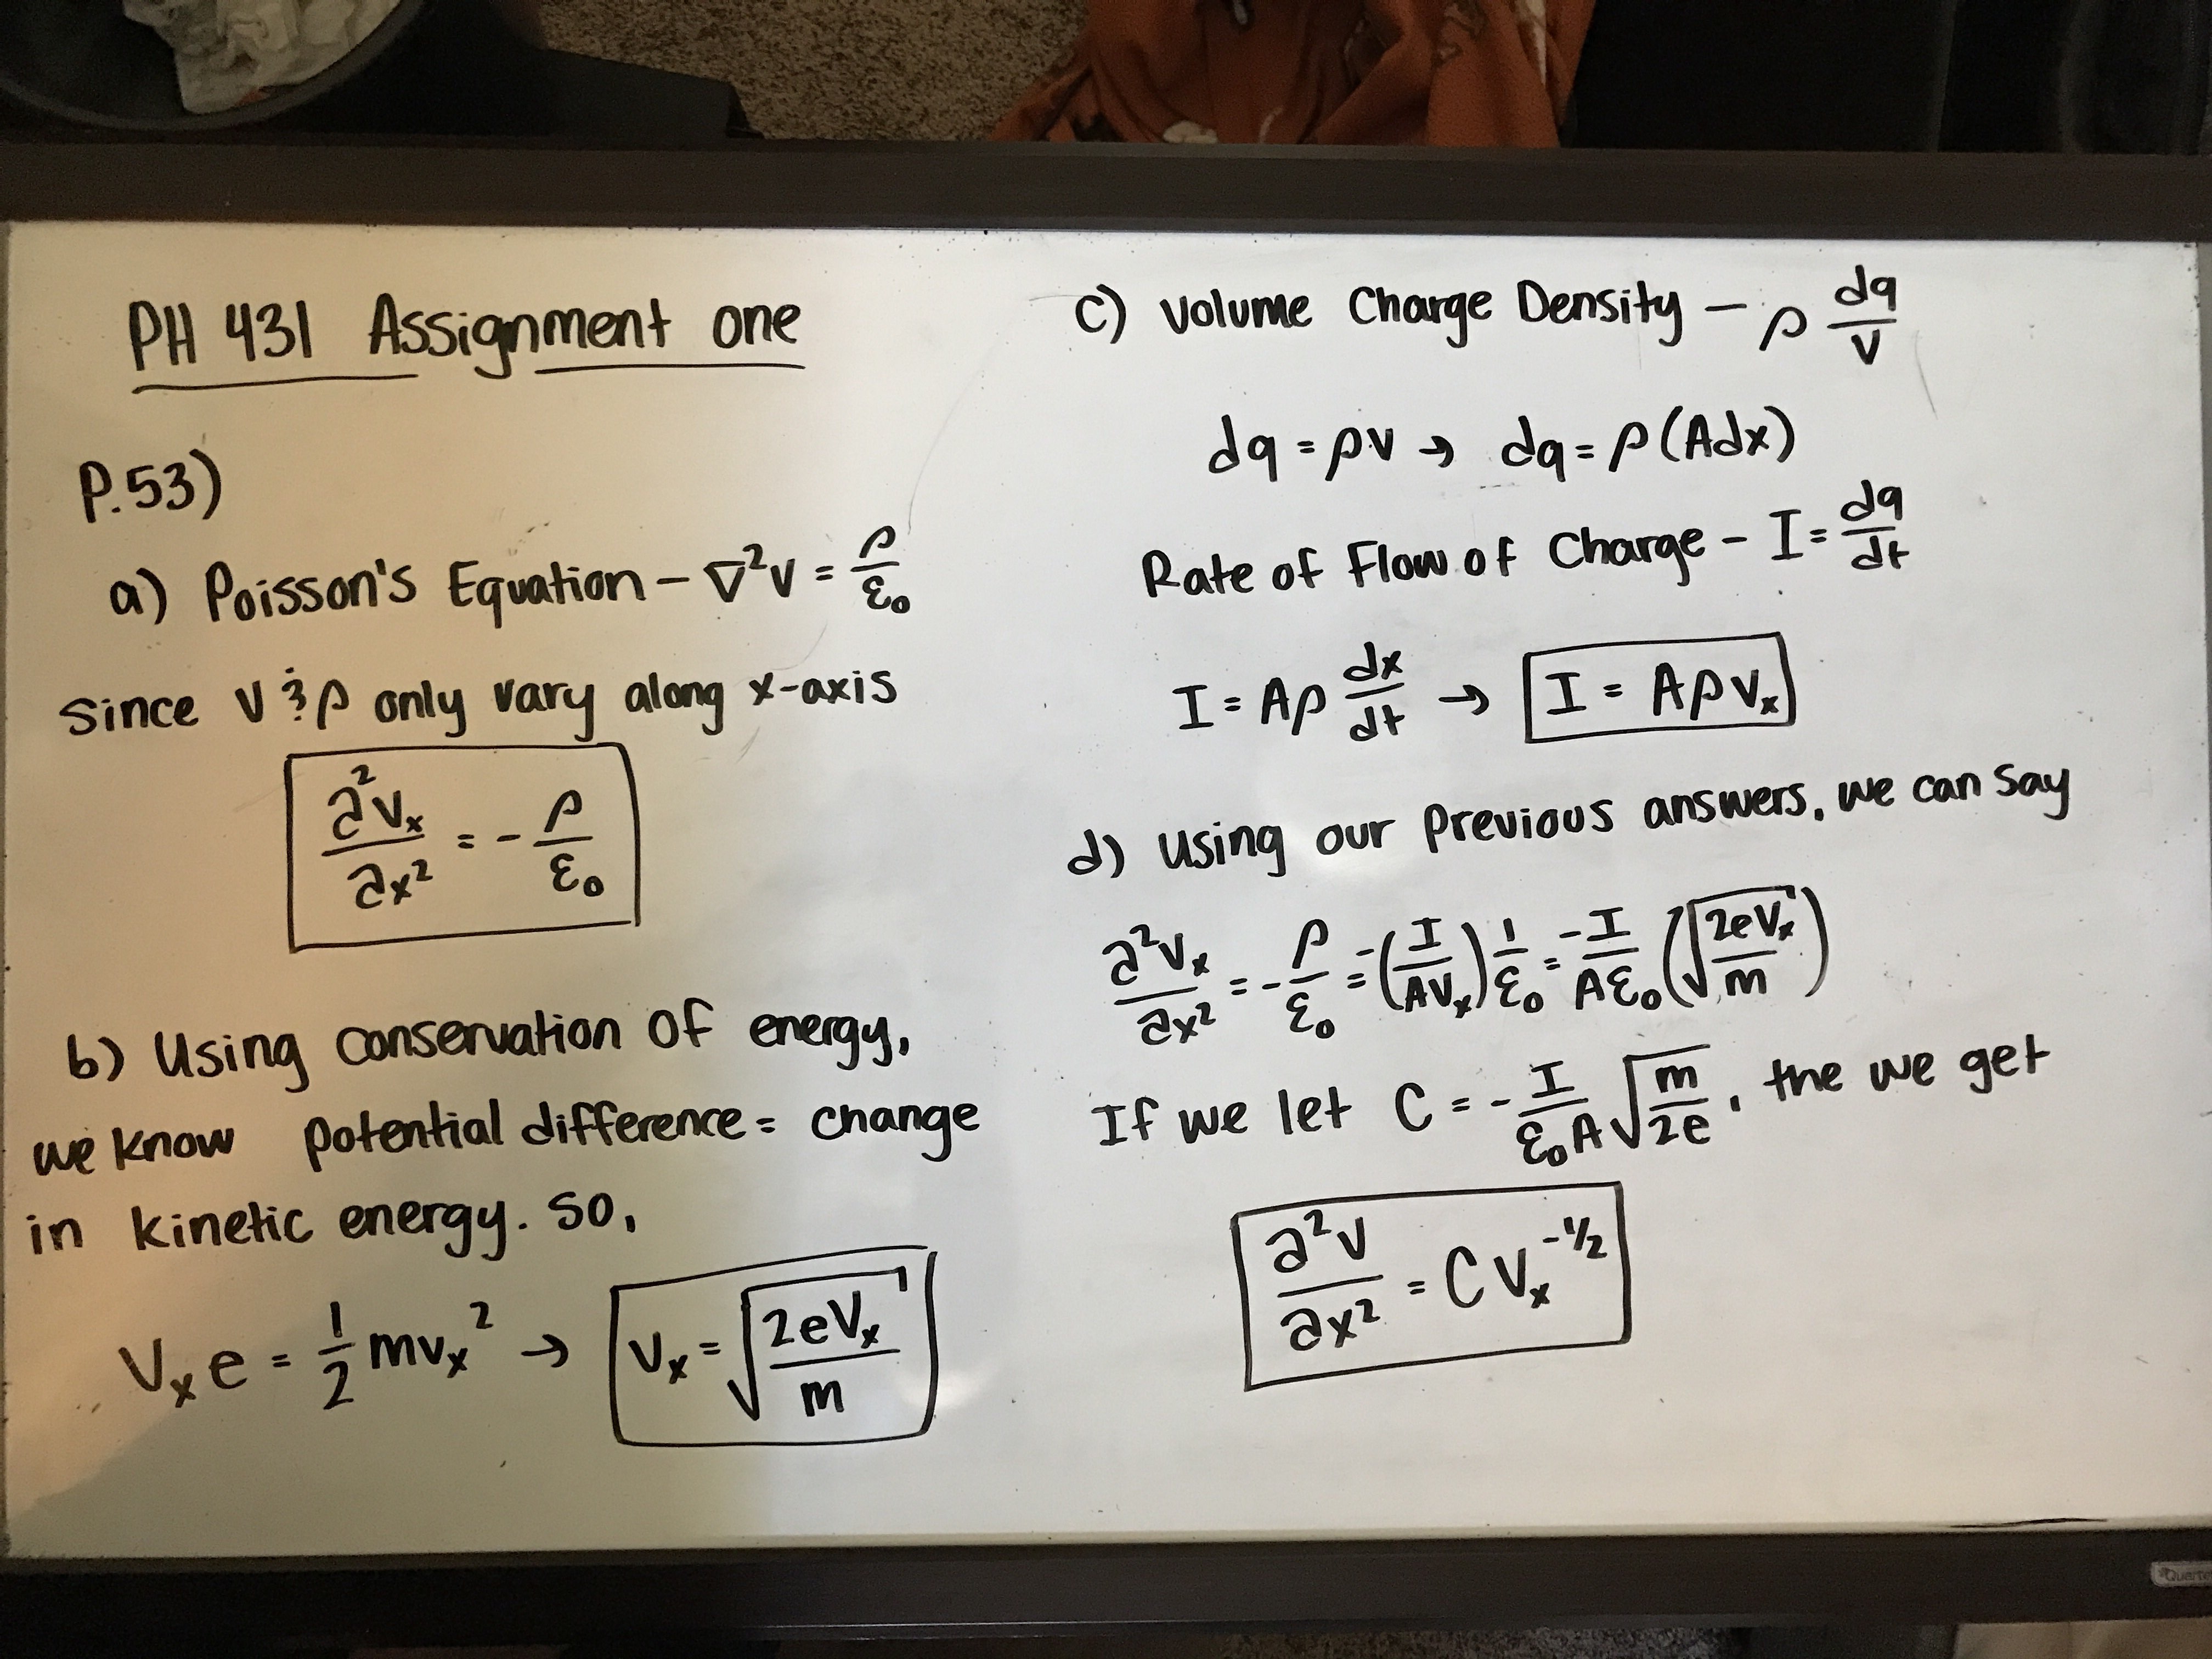 PH 431 Assignment one
P.53)
a) Poisson's Equation – ∇²V = ρ/ε₀
since V & ρ only vary along x-axis
∂²Vₓ/∂x² = - ρ/ε₀
b) Using conservation of energy,
we know potential difference = change
in kinetic energy. So,
Vₓe = 1/2 mvₓ² → vₓ = √(2eVₓ/m)
c) Volume Charge Density – ρ dq/V
dq = ρV → dq = ρ(Adx)
Rate of Flow of Charge – I = dq/dt
I = Aρ dx/dt → I = Aρvₓ
d) Using our Previous answers, we can say
∂²Vₓ/∂x² = - ρ/ε₀ = -(I/AVₓ) 1/ε₀ = -I/Aε₀ (√(2eVₓ/m))
If we let C = - I/ε₀A √(m/2e), the we get
∂²V/∂x² = CVₓ^(-1/2)